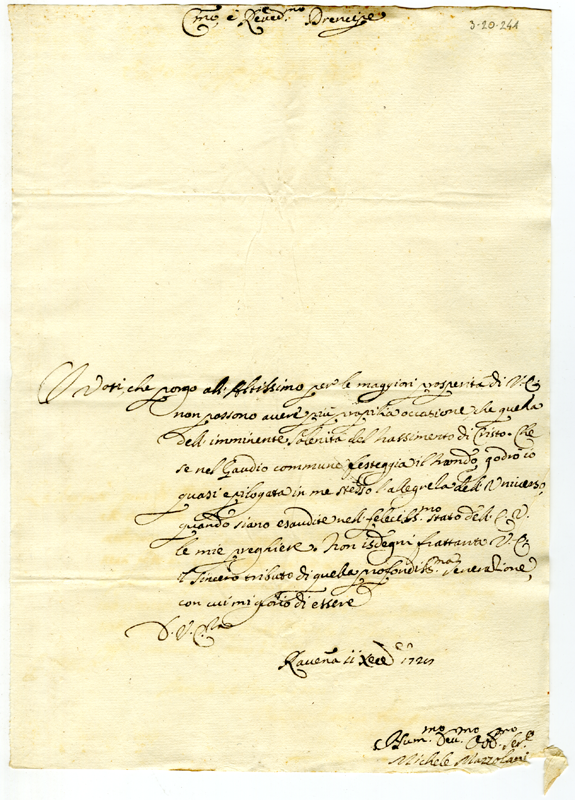 E.mo, e Reved.mo Prencipe
3-20-241
Voti, che porgo all'Altissimo per le maggiori prosperità di V. E.
non possono avere più propitia occasione che quella
dell'imminente Solenità del Nassimento di Cristo. Che
se nel Gaudio commune festeggia il Mondo, godrò io
quasi epilogata in me stesso l'allegrezza dell'Universo,
quando siano esaudite nel felicis.mo stato dell'E. V.
le mie preghiere. Non isdegni frattanto V. E.
il Sincero tributo di quella profondis.ma venerazione,
con cui mi glorio di essere
D. V. E.za
Ravena 11 Xe
Hum.mo Dev.mo Obb.mo Ser.e
Michele Mazzolani